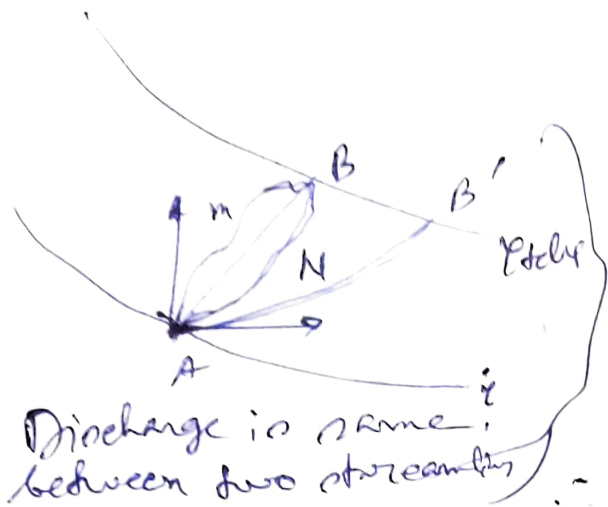 B
B'
m
N
ψ+dψ
A
ψ
Discharge is same
between two streamlines